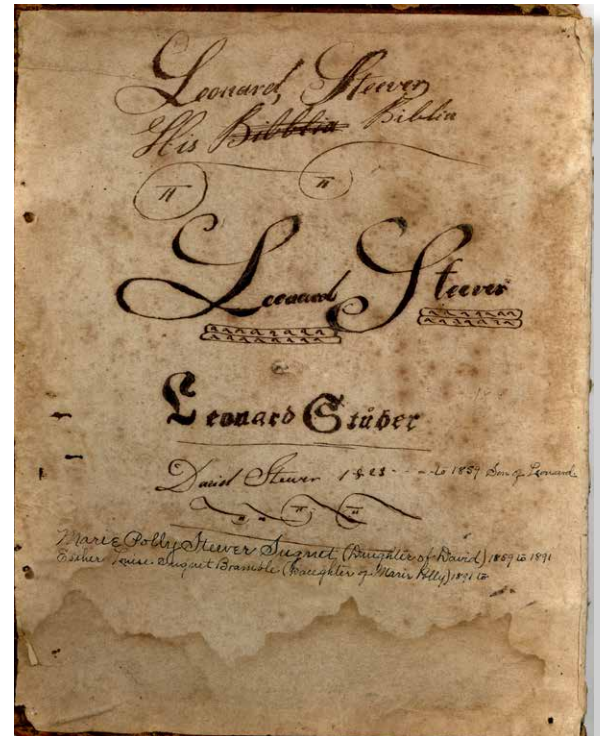 Leonard Steever
His Bibblia Biblia
Leonard Steever
Leonard Stüber
David Steever 1823 - - - to 1859 Son of Leonard
Marie Polly Steever Suguet (Daughter of David) 1859 to 1891
Esther Louise Suguet Bramble (Daughter of Marie Polly) 1891 to